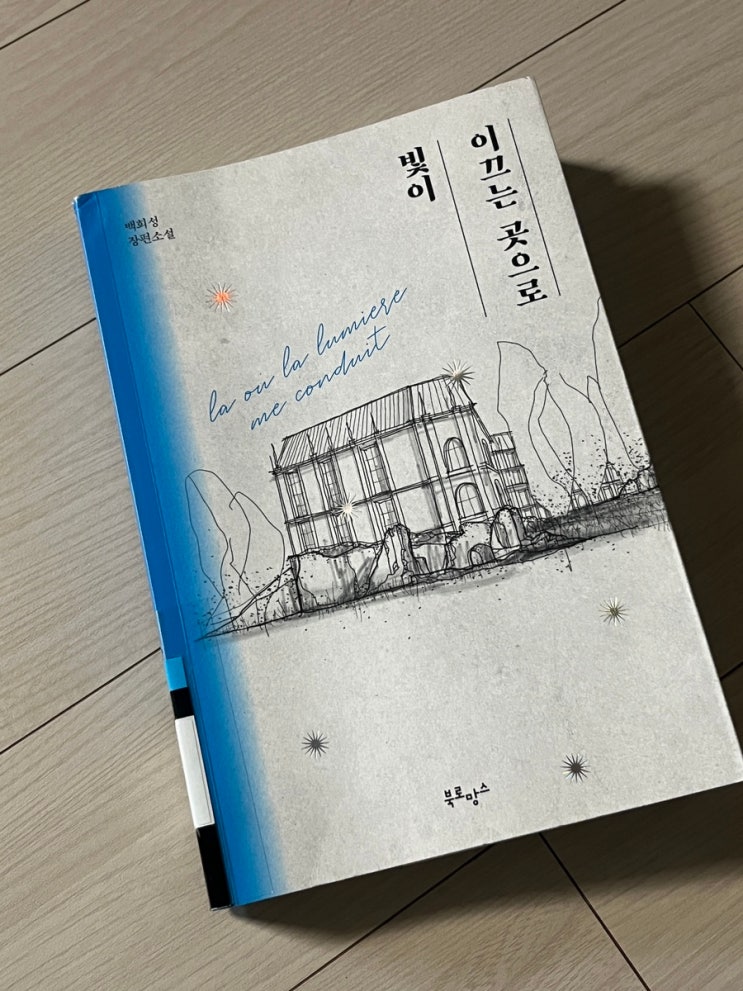 빛이
이끄는 곳으로
백희성
장편소설
la ou la lumiere
me conduit
북로망스